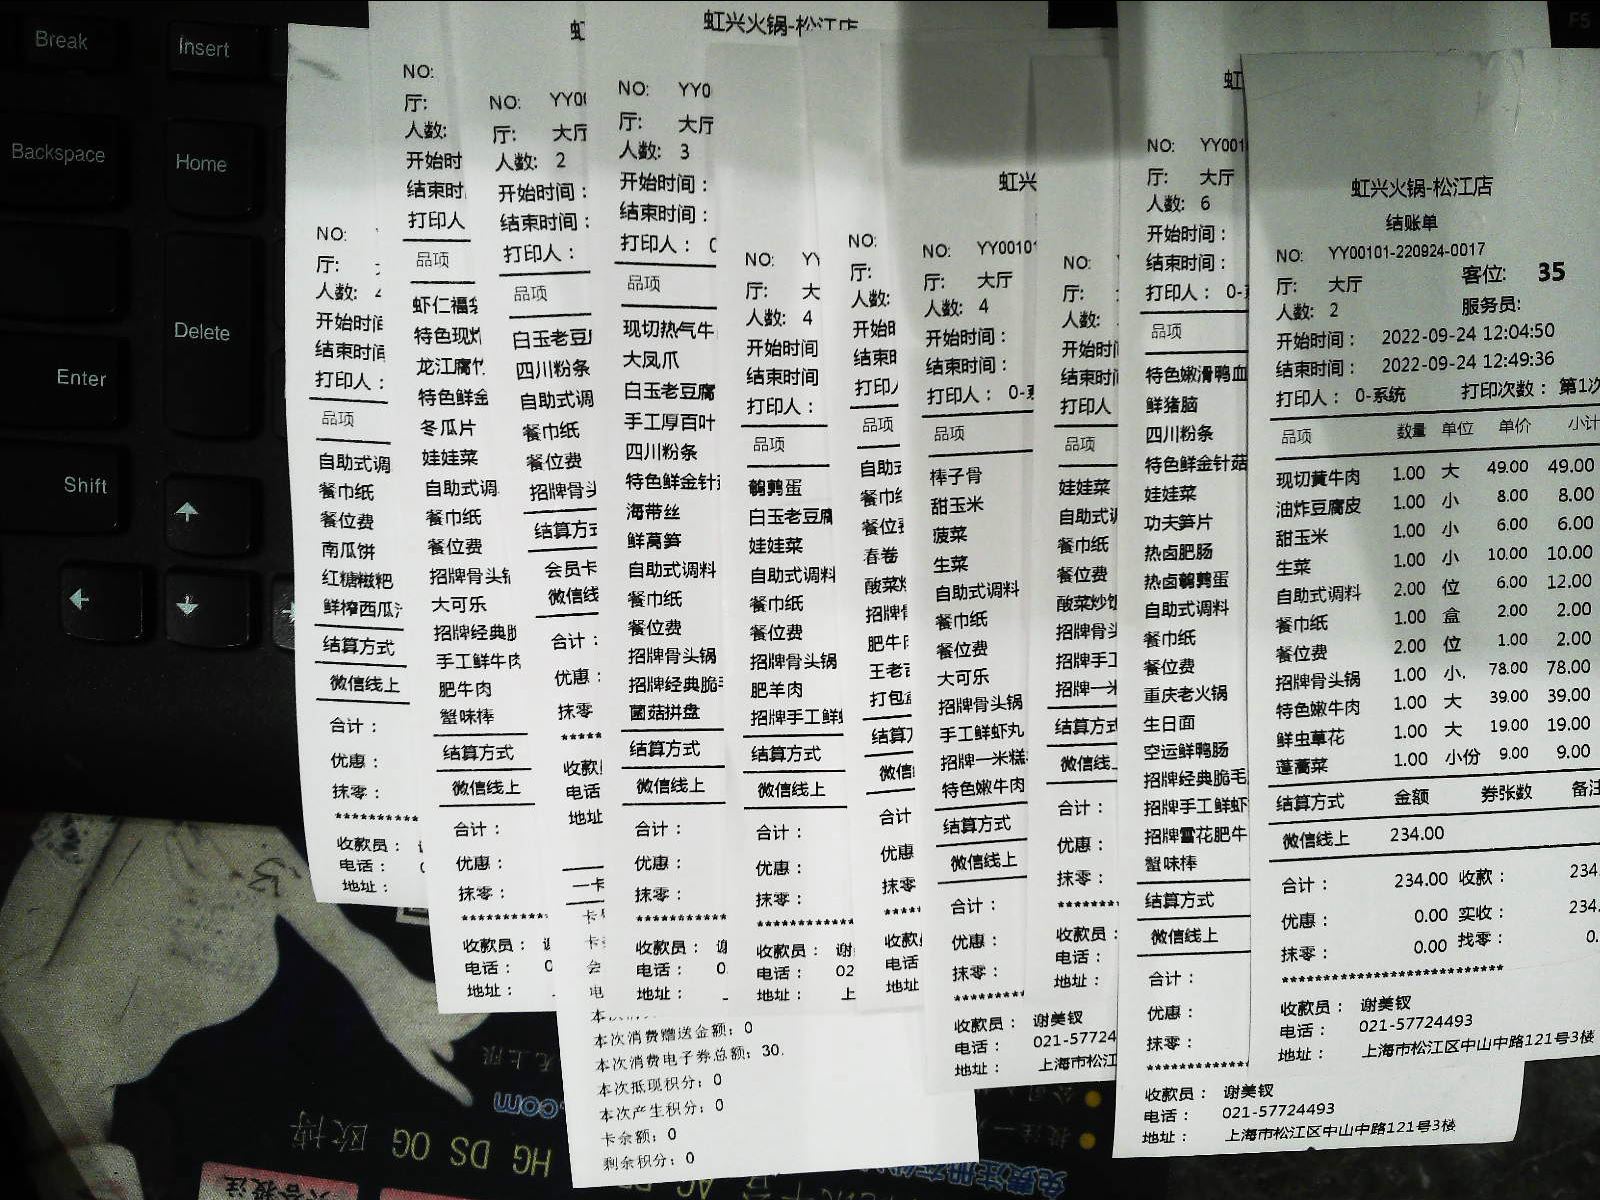 Break
Insert
Backspace
Home
Delete
Enter
Shift
F5
NO:
厅:
人数: 4
开始时间
结束时间
打印人：
品项
自助式调
餐巾纸
餐位费
南瓜饼
红糖糍粑
鲜榨西瓜汁
结算方式
微信线上
合计：
优惠：
抹零：
******************
收款员：
电话：
地址：
NO:
厅:
人数:
开始时
结束时
打印人
品项
虾仁福袋
特色现炸
龙江腐竹
特色鲜金
冬瓜片
娃娃菜
自助式调
餐巾纸
餐位费
招牌骨头锅
大可乐
招牌经典脆
手工鲜牛肉
肥牛肉
蟹味棒
结算方式
微信线上
合计：
优惠：
抹零：
******************
收款员：
电话： 0
地址：
NO: YY00
厅: 大厅
人数: 2
开始时间：
结束时间：
打印人：
品项
白玉老豆
四川粉条
自助式调
餐巾纸
餐位费
招牌骨头
结算方式
会员卡
微信线
合计：
优惠：
抹零
*****
收款
电话
地址
一卡
本次消费赠送金额：0
本次消费电子券总额：30.
本次抵现积分：0
本次产生积分：0
卡余额：0
剩余积分：0
虹兴火锅-松江店
NO: YY0
厅: 大厅
人数: 3
开始时间：
结束时间：
打印人： 0
品项
现切热气牛
大凤爪
白玉老豆腐
手工厚百叶
四川粉条
特色鲜金针
海带丝
鲜莴笋
自助式调料
餐巾纸
餐位费
招牌骨头锅
招牌经典脆毛
菌菇拼盘
结算方式
微信线上
合计：
优惠：
抹零：
******************
收款员： 谢
电话： 0
地址：
NO: YY
厅: 大
人数: 4
开始时间
结束时间
打印人：
品项
鹌鹑蛋
白玉老豆腐
娃娃菜
自助式调料
餐巾纸
餐位费
招牌骨头锅
肥羊肉
招牌手工鲜虾
结算方式
微信线上
合计：
优惠：
抹零：
******************
收款员： 谢
电话： 02
地址： 上
NO:
厅:
人数:
开始时
结束时
打印人
品项
自助式
餐巾纸
餐位费
春卷
酸菜炒
招牌骨
肥牛肉
王老吉
打包盒
结算方
微信
合计
优惠
抹零
*****
收款
电话
地址
虹兴
NO: YY00101
厅: 大厅
人数: 4
开始时间：
结束时间：
打印人： 0-系
品项
棒子骨
甜玉米
菠菜
生菜
自助式调料
餐巾纸
餐位费
大可乐
招牌骨头锅
手工鲜虾丸
招牌一米糕
特色嫩牛肉
结算方式
微信线上
合计：
优惠：
抹零：
**********
收款员： 谢美钗
电话： 021-57724
地址： 上海市松江
NO:
厅:
人数:
开始时
结束时
打印人
品项
娃娃菜
自助式调
餐巾纸
餐位费
酸菜炒饭
招牌骨头
招牌手工
招牌一米
结算方式
微信线
合计：
优惠：
抹零：
**********
收款员：
电话：
地址：
NO: YY001
厅: 大厅
人数: 6
开始时间：
结束时间：
打印人： 0-
品项
特色嫩滑鸭血
鲜猪脑
四川粉条
特色鲜金针菇
娃娃菜
功夫笋片
热卤肥肠
热卤鹌鹑蛋
自助式调料
餐巾纸
餐位费
重庆老火锅
生日面
空运鲜鸭肠
招牌经典脆毛
招牌手工鲜虾
招牌雪花肥牛
蟹味棒
结算方式
微信线上
合计：
优惠：
抹零：
******************
收款员： 谢美钗
电话： 021-57724493
地址： 上海市松江区中山中路121号3楼
虹兴火锅-松江店
结账单
NO: YY00101-220924-0017
厅: 大厅 客位: 35
人数: 2 服务员:
开始时间： 2022-09-24 12:04:50
结束时间： 2022-09-24 12:49:36
打印人： 0-系统 打印次数： 第1次
品项 数量 单位 单价 小计
现切黄牛肉 1.00 大 49.00 49.00
油炸豆腐皮 1.00 小 8.00 8.00
甜玉米 1.00 小 6.00 6.00
生菜 1.00 小 10.00 10.00
自助式调料 2.00 位 6.00 12.00
餐巾纸 1.00 盒 2.00 2.00
餐位费 2.00 位 1.00 2.00
招牌骨头锅 1.00 小. 78.00 78.00
特色嫩牛肉 1.00 大 39.00 39.00
鲜虫草花 1.00 大 19.00 19.00
蓬蒿菜 1.00 小份 9.00 9.00
结算方式 金额 券张数 备注
微信线上 234.00
合计： 234.00 收款： 234.
优惠： 0.00 实收： 234.
抹零： 0.00 找零： 0.
******************************
收款员： 谢美钗
电话： 021-57724493
地址： 上海市松江区中山中路121号3楼
.com
欧博 OG DS HG